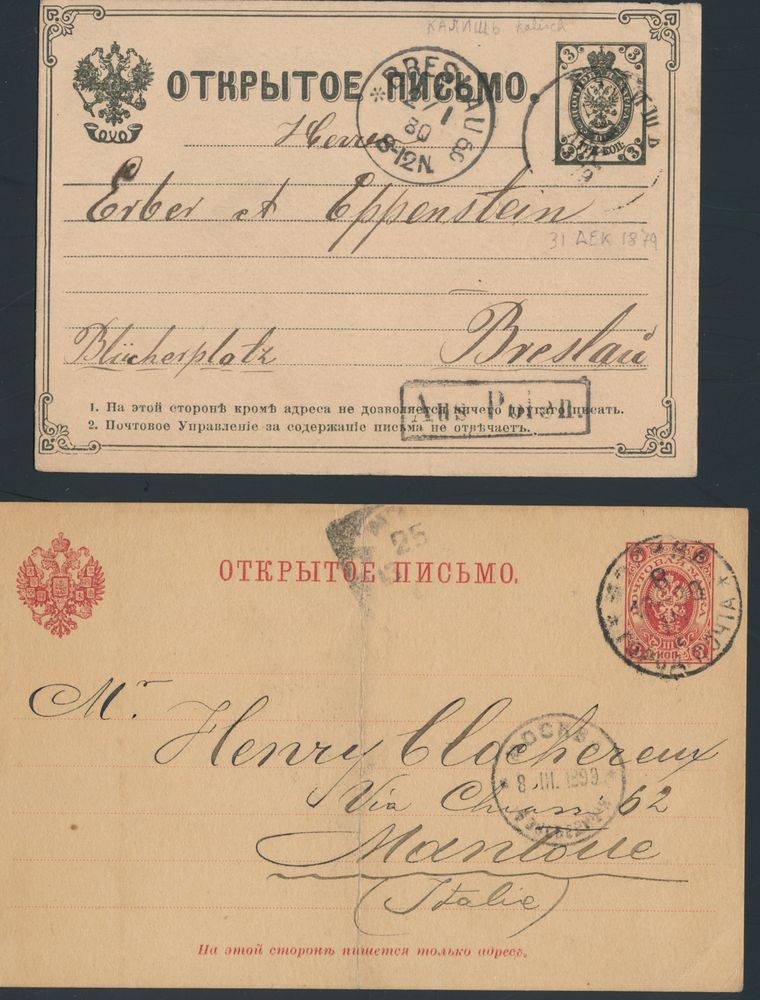 КАЛИШЪ Kalisch
ОТКРЫТОЕ ПИСЬМО.
BRESLAU
2/1
80
8-12N.
3 3
ТРИ КОП.
3 3
Herren
Erber & Eppenstein
31 ДЕК 1879
Blücherplatz Breslau
Aus Polen
1. На этой сторонѣ кромѣ адреса не дозволяется ничего другаго писать.
2. Почтовое Управленіе за содержаніе письма не отвѣчаетъ.
25
ОТКРЫТОЕ ПИСЬМО.
ПОЧТА
КОП.
Mr Henry Clochereux
МОСКВА
8 III. 1899
Via Chiassi 62
Mantoue
(Italie)
На этой сторонѣ пишется только адресъ.